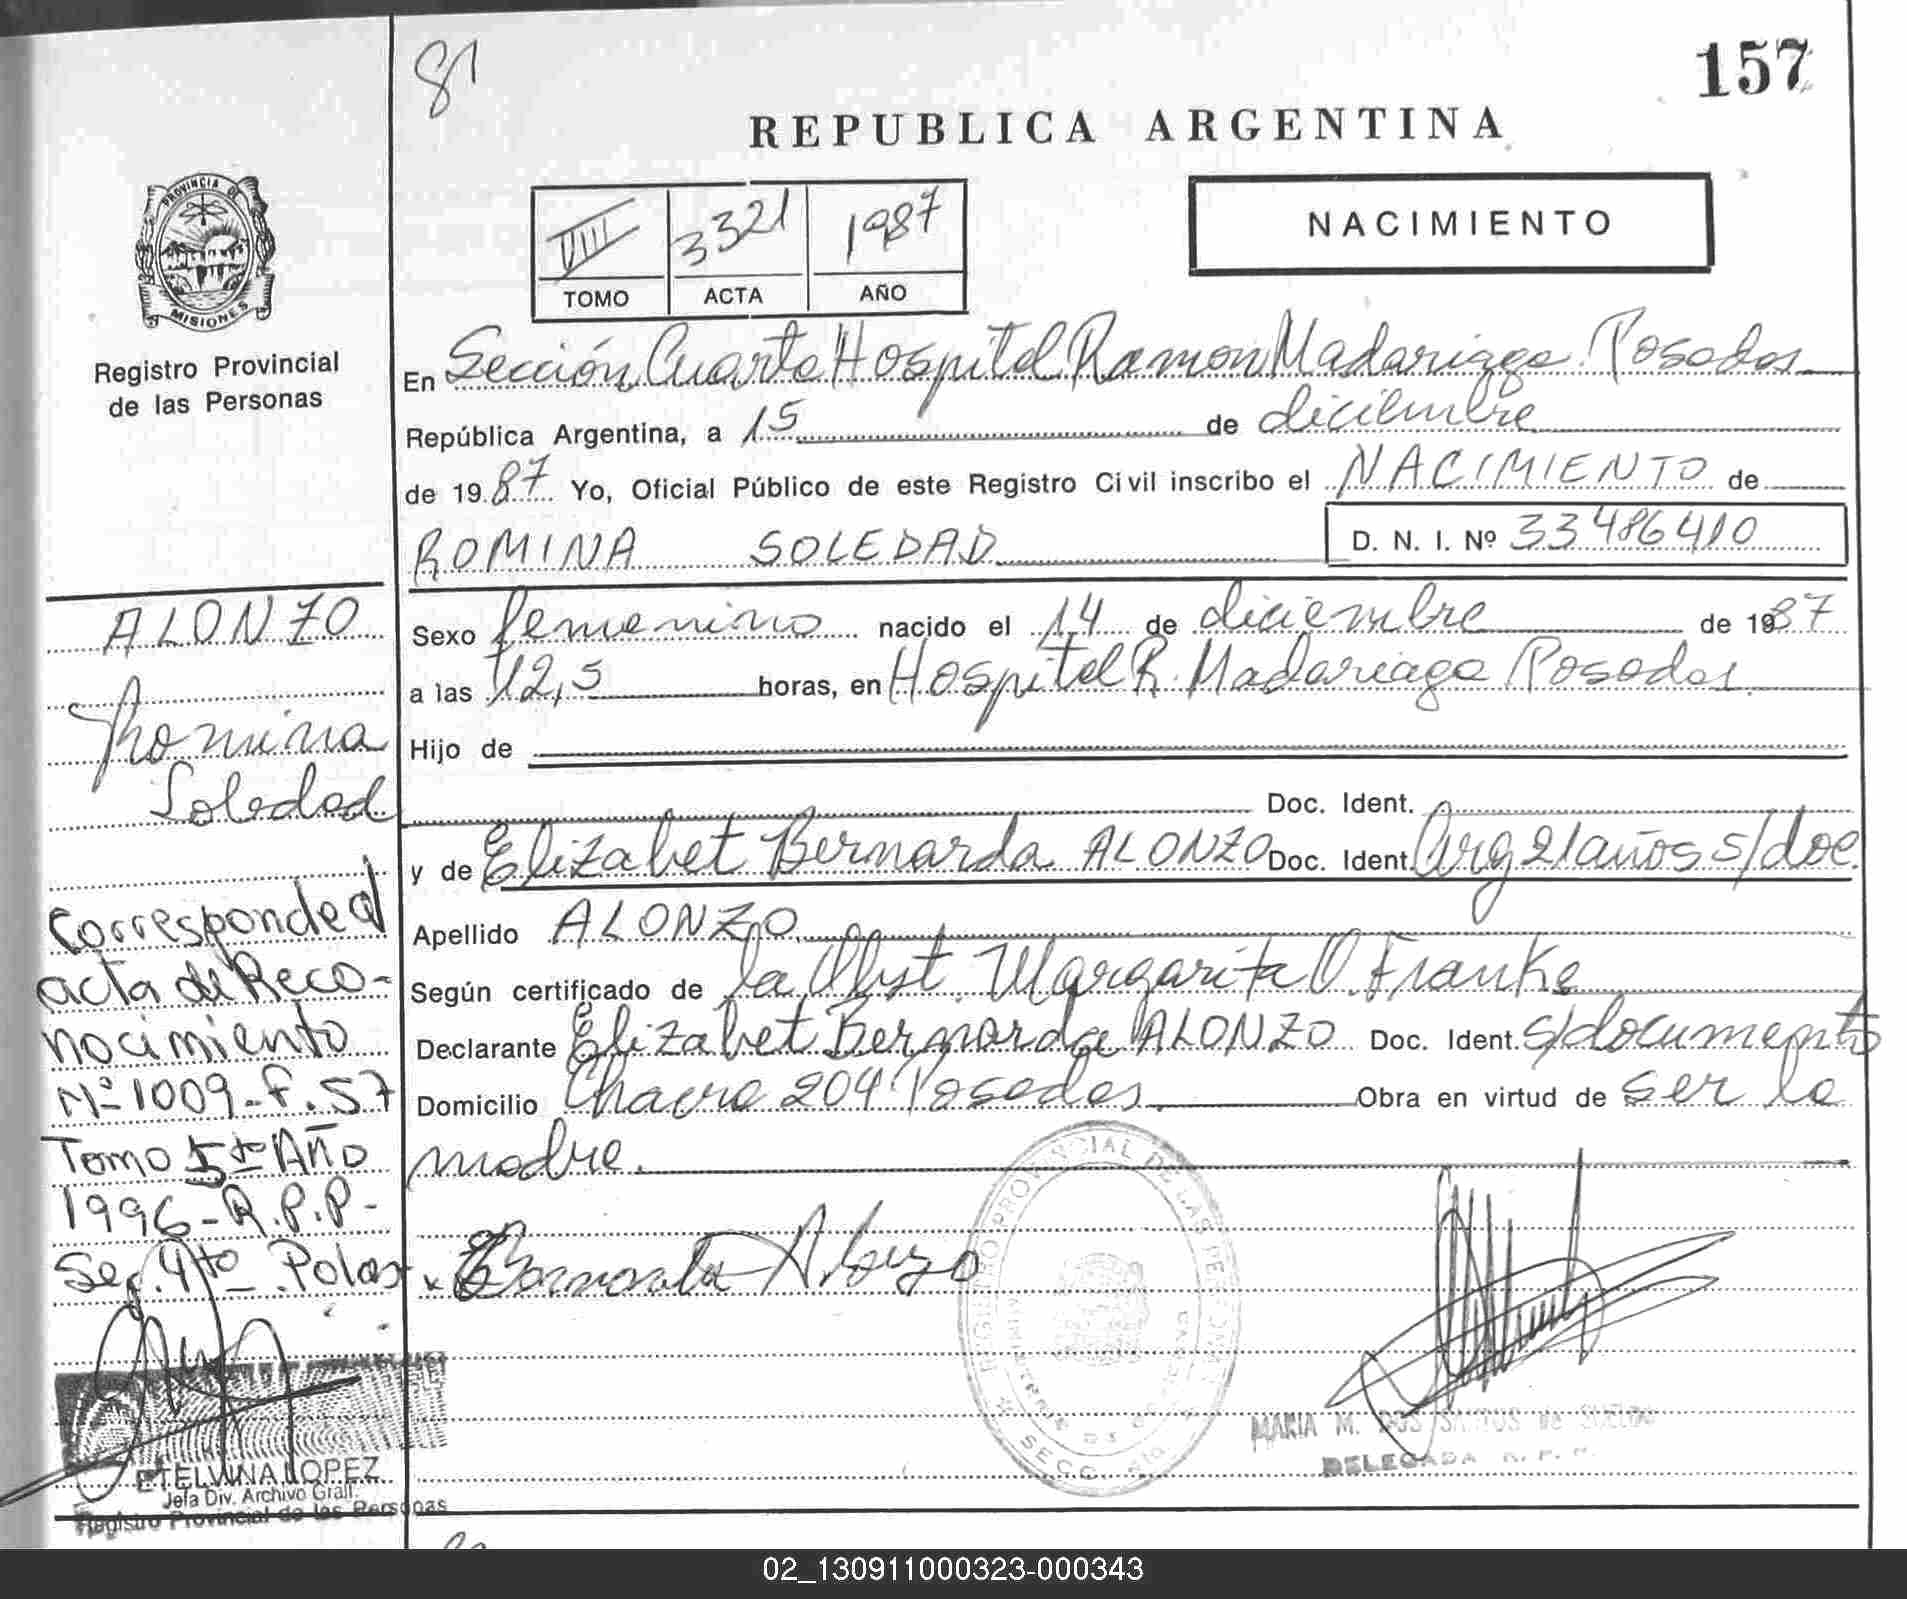 81
157
REPUBLICA ARGENTINA
VIII 3321 1987
TOMO ACTA AÑO
NACIMIENTO
PROVINCIA DE
MISIONES
Registro Provincial
de las Personas
En Sección Cuarta Hospital Ramon Madariaga. Posadas
República Argentina, a 15 de diciembre
de 1987 Yo, Oficial Público de este Registro Civil inscribo el NACIMIENTO de
ROMINA SOLEDAD D. N. I. Nº 33486410
Sexo femenino nacido el 14 de diciembre de 1987
a las 12,5 horas, en Hospital R. Madariaga Posadas.
Hijo de
Doc. Ident.
y de Elizabet Bernarda ALONZO Doc. Ident. Arg 21 años s/doc.
Apellido ALONZO
Según certificado de la Obst. Margarita O. Franke
Declarante Elizabet Bernarda ALONZO Doc. Ident. s/documento
Domicilio Chacra 204 Posadas. Obra en virtud de ser la
madre.
ALONZO
Romina
Soledad
Corresponde al
acta de Reco-
nocimiento
Nº 1009-F.57
Tomo 5to Año
1996-R.P.P-
Sec. 4to Pdas
Bernarda Alonzo
REGISTRO PROVINCIAL DE LAS PERSONAS
SECC. 4ta
MARIA M. DOS SANTOS de
DELEGADA R. P. P.
ETELVINA LOPEZ
Jefa Div. Archivo Gral.
Registro Provincial de las Personas
02_130911000323-000343